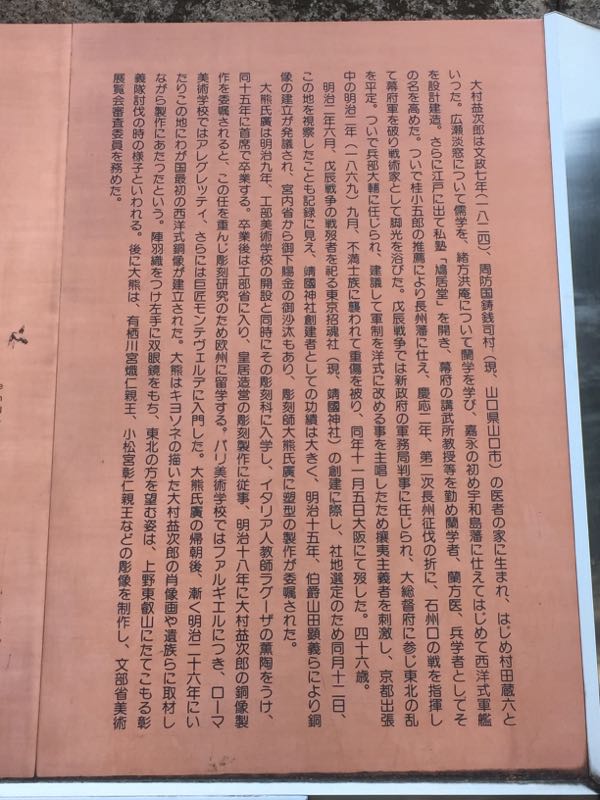 大村益次郎は文政七年（一八二四）、周防国鋳銭司村（現、山口県山口市）の医者の家に生まれ、はじめ村田蔵六と
いった。広瀬淡窓について儒学を、緒方洪庵について蘭学を学び、嘉永の初め宇和島藩に仕えてはじめて西洋式軍艦
を設計建造。さらに江戸に出て私塾「鳩居堂」を開き、幕府の講武所教授等を勤め蘭学者、蘭方医、兵学者としてそ
の名を高めた。ついで桂小五郎の推薦により長州藩に仕え、慶応二年、第二次長州征伐の折に、石州口の戦を指揮し
て幕府軍を破り戦術家として脚光を浴びた。戊辰戦争では新政府の軍務局判事に任じられ、大総督府に参じ東北の乱
を平定。ついで兵部大輔に任じられ、建議して軍制を洋式に改める事を主唱したため攘夷主義者を刺激し、京都出張
中の明治二年（一八六九）九月、不満士族に襲われて重傷を被り、同年十一月五日大阪にて歿した。四十六歳。
明治二年六月、戊辰戦争の戦歿者を祀る東京招魂社（現、靖國神社）の創建に際し、社地選定のため同月十二日、
この地を視察したことも記録に見え、靖國神社創建者としての功績は大きく、明治十五年、伯爵山田顕義らにより銅
像の建立が発議され、宮内省から御下賜金の御沙汰もあり、彫刻師大熊氏廣に塑型の製作が委嘱された。
大熊氏廣は明治九年、工部美術学校の開設と同時にその彫刻科に入学し、イタリア人教師ラグーザの薫陶をうけ、
同十五年に首席で卒業する。卒業後は工部省に入り、皇居造営の彫刻製作に従事、明治十八年に大村益次郎の銅像製
作を委嘱されると、この任を重んじ彫刻研究のため欧州に留学する。パリ美術学校ではファルギエルにつき、ローマ
美術学校ではアレグレッティ、さらには巨匠モンテヴェルデに入門した。大熊氏廣の帰朝後、漸く明治二十六年にい
たりこの地にわが国最初の西洋式銅像が建立された。大熊はキヨソネの描いた大村益次郎の肖像画や遺族らに取材し
ながら製作にあたったという。陣羽織をつけ左手に双眼鏡をもち、東北の方を望む姿は、上野東叡山にたてこもる彰
義隊討伐の時の様子といわれる。後に大熊は、有栖川宮熾仁親王、小松宮彰仁親王などの彫像を制作し、文部省美術
展覧会審査委員を務めた。